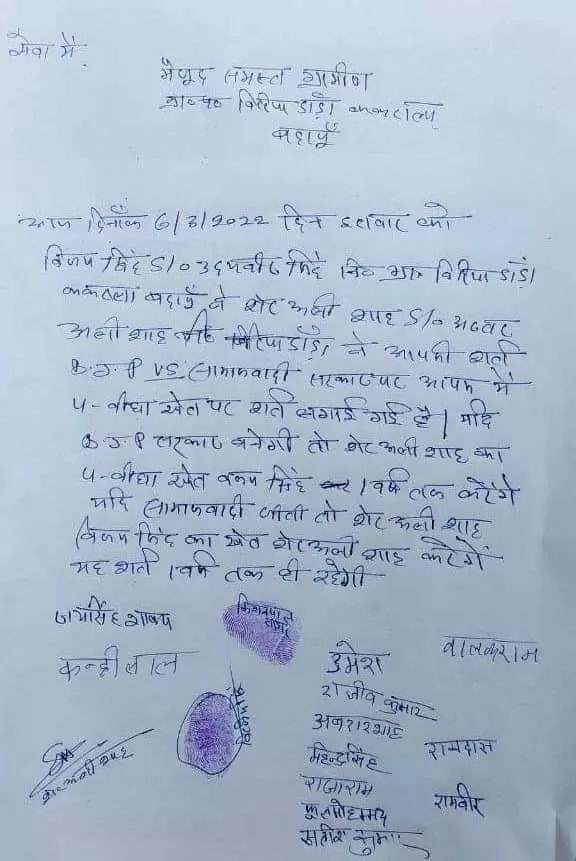 सेवा में.
मौजूद समस्त ग्रामीण
ग्राम विरियाडांडा ककराला
बदायूँ
आज दिनाँक 6/3/2022 दिन इतवार को
विजय सिंह S/o सिंह नि० ग्राम विरियाडांडा
ककराला बदायूँ ने शेर अली शाह S/o
अली शाह विरियाडांडा ने आपसी शर्त
B.J.P VS समाजवादी सरकार पर आपस में
4-वीघा खेत पर शर्त लगाई गई है। यदि
B.J.P सरकार बनेगी तो शेर अली शाह का
4-वीघा खेत विजय सिंह 1 वर्ष तक करेंगे
यदि समाजवादी जीती तो शेर अली शाह
विजय सिंह का खेत शेर अली शाह करेंगे
यह शर्त 1 वर्ष तक ही रहेगी
जयसिंह शाक्य
किशनपाल
कन्ही लाल
उमेश
वालकराम
राजीव कुमार
अवरार शाह
महेन्द्र सिंह
रामदास
राजाराम
रामवीर
शेर अली शाह
सतीश कुमार